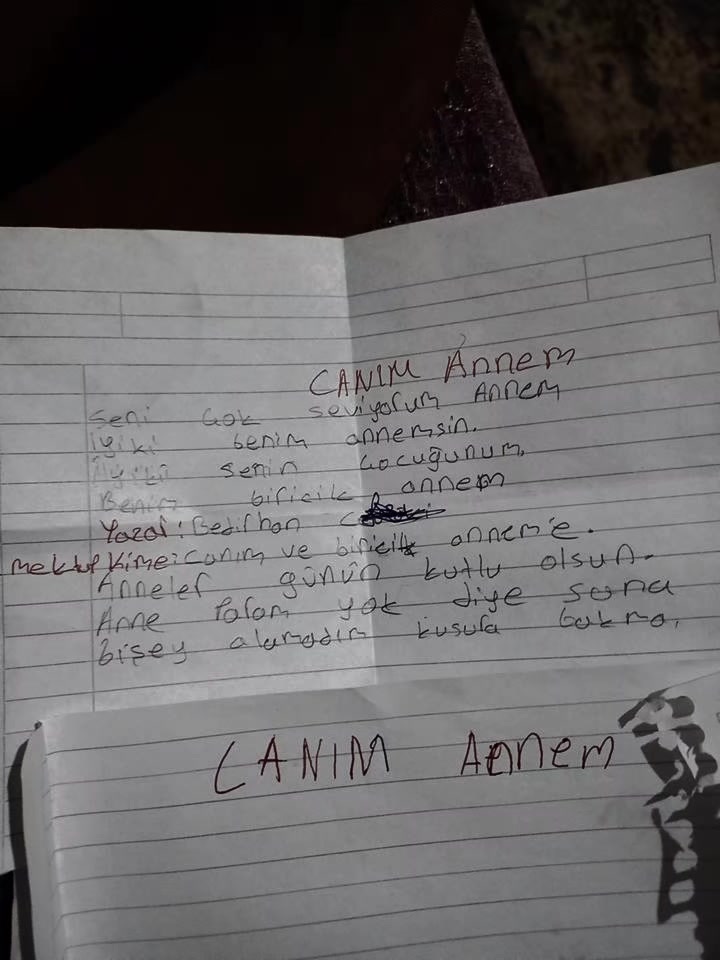 CANIM Annem
Seni çok seviyorum Annem
iyiki benim annemsin.
iyiki senin çocuğunum.
Benim biricik annem
Yazar: Bedirhan
mektup kime: canım ve biricik annem'e.
Anneler günün kutlu olsun.
Anne param yok diye sana
bişey alamadım kusura bakma.
CANIM Annem